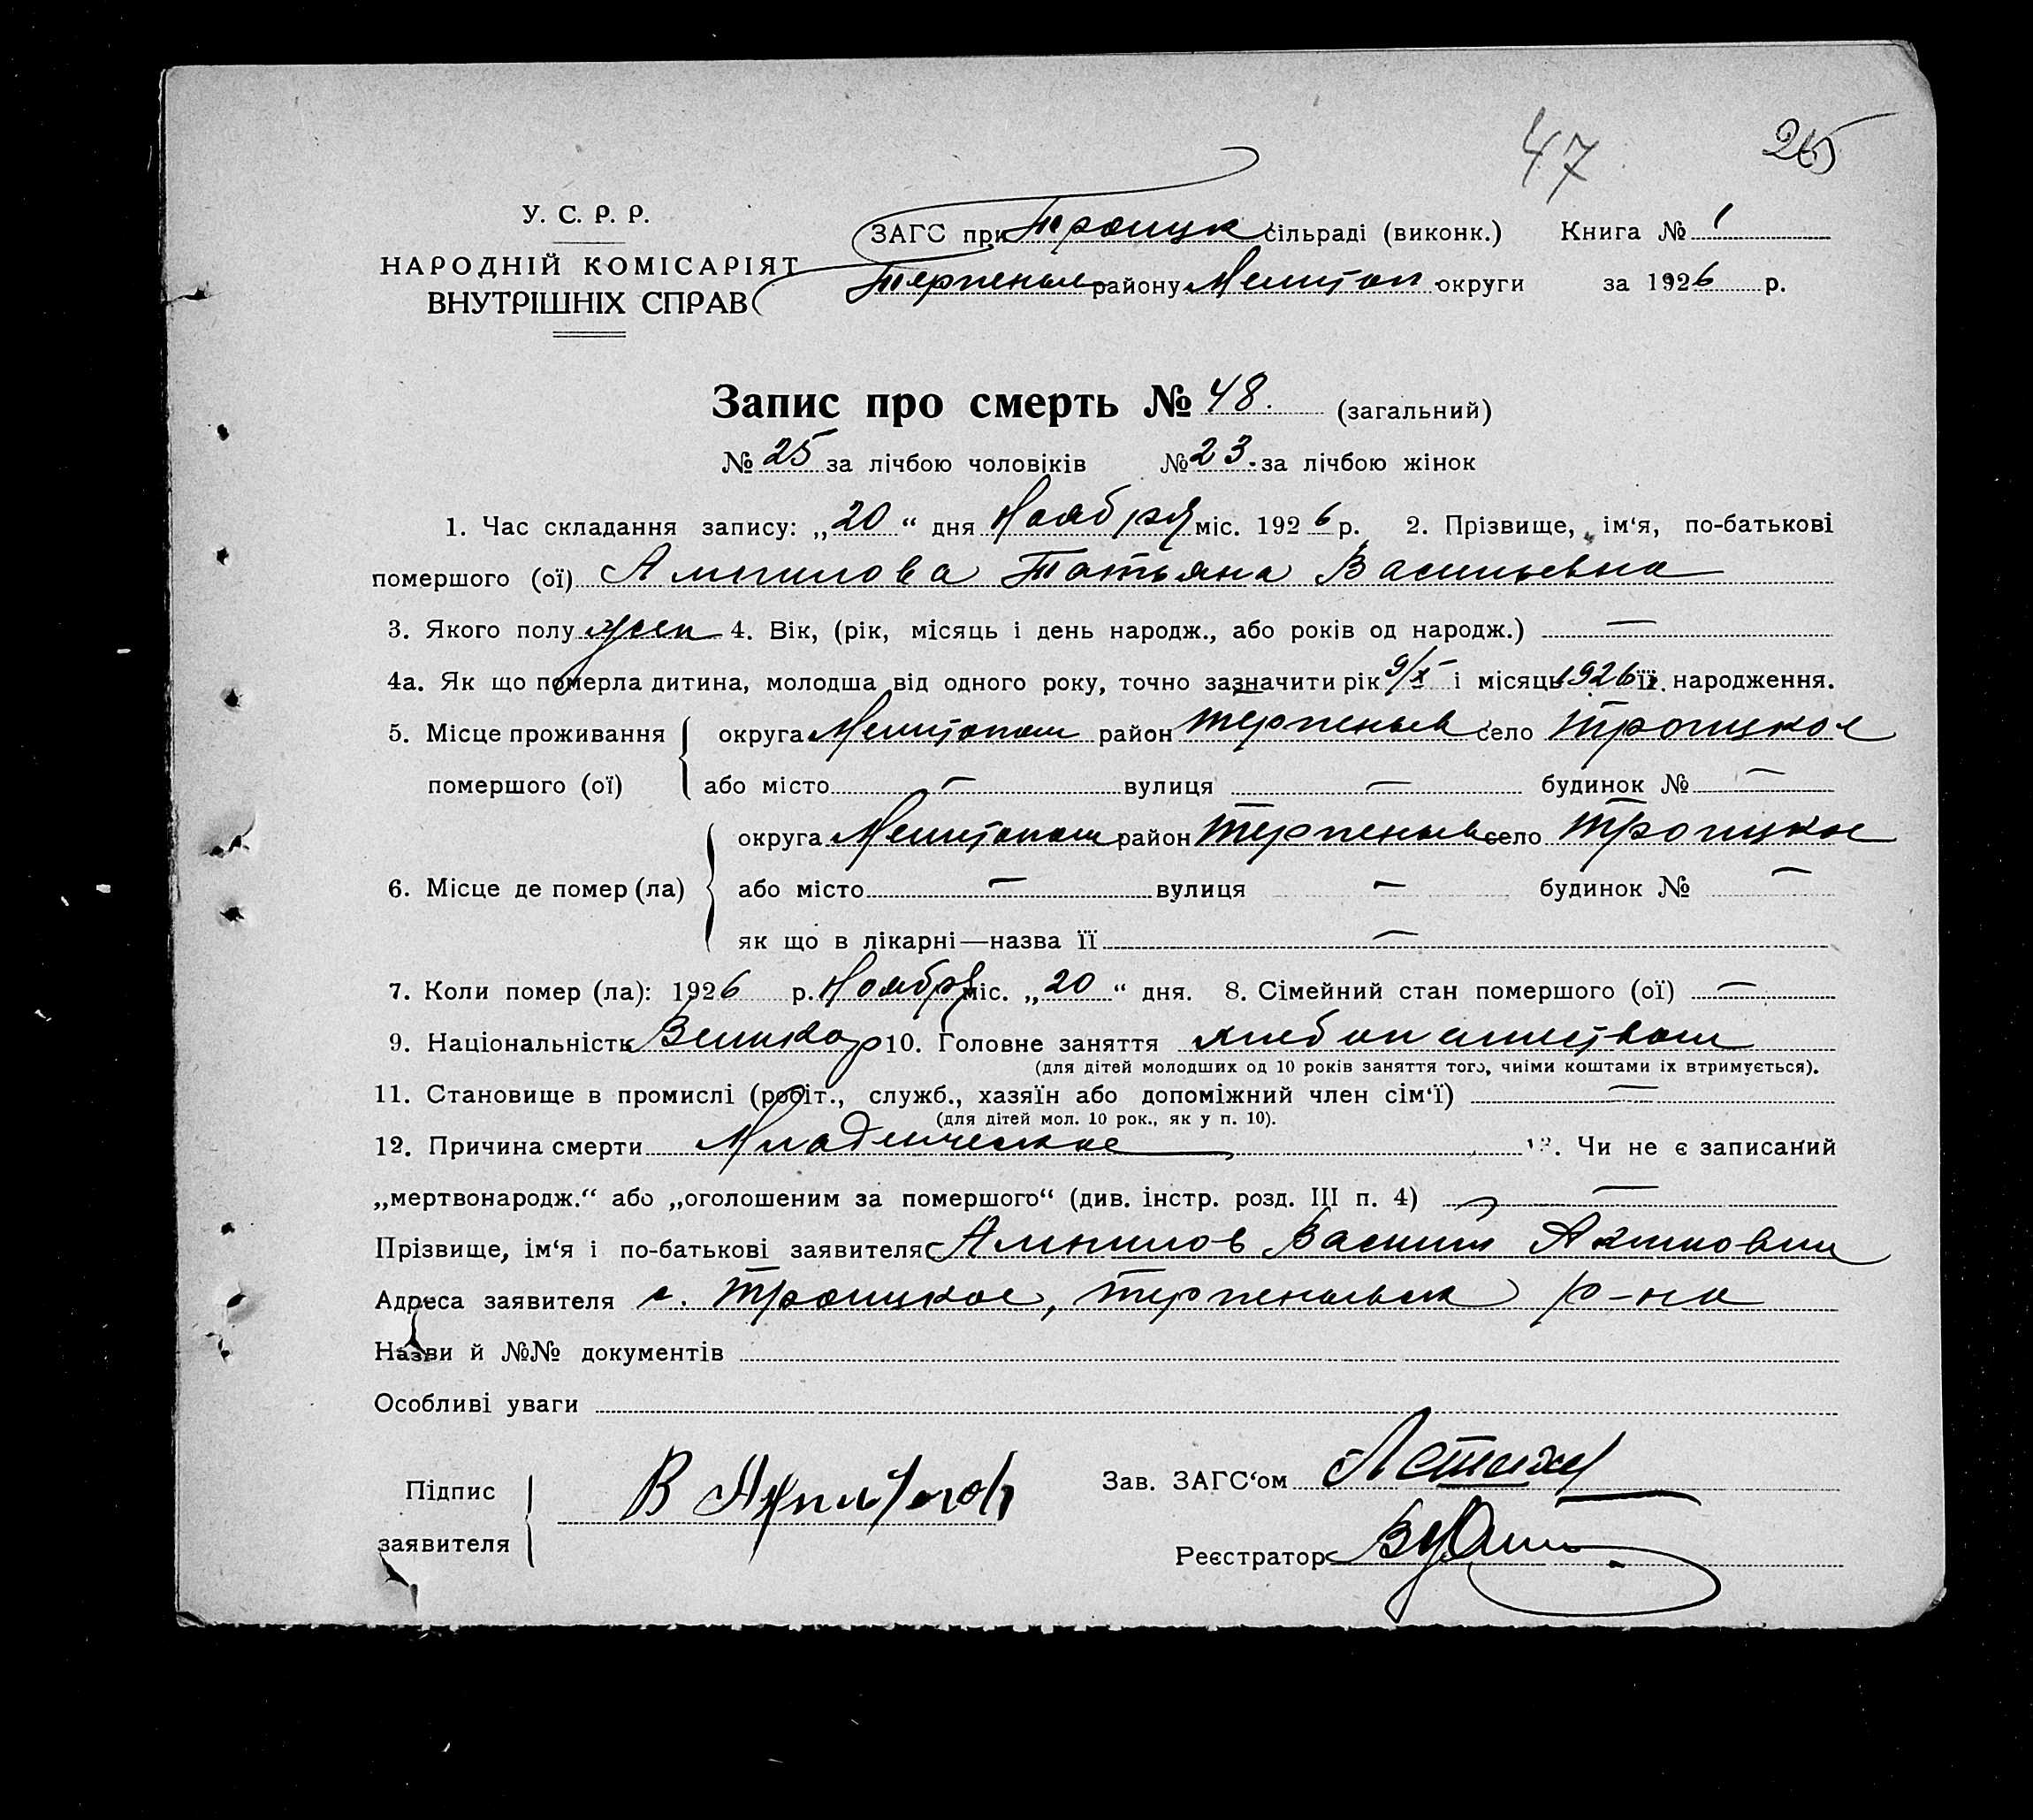 47 26
У. С. Р. Р.
НАРОДНІЙ КОМІСАРІЯТ
ВНУТРІШНІХ СПРАВ
ЗАГС при Троицк сільраді (виконк.) Книга № 1
Терпеньев району Мелитоп округи за 1926 р.
Запис про смерть № 48. (загальний)
№ 25 за лічбою чоловіків № 23. за лічбою жінок
1. Час складання запису: „20“ дня Ноября міс. 1926 р. 2. Прізвище, ім‘я, по-батькові
помершого (ої) Татьяна Васильевна
3. Якого полу жен 4. Вік, (рік, місяць і день народж., або років од народж.) —
4а. Як що померла дитина, молодша від одного року, точно зазначити рік 9/X і місяць 1926 її народження.
5. Місце проживання округа Мелитопол район Терпеньев село Троицкое
помершого (ої) або місто — вулиця — будинок № —
округа Мелитопол район Терпеньев село Троицкое
6. Місце де помер (ла) або місто — вулиця — будинок № —
як що в лікарні—назва її —
7. Коли помер (ла): 1926 р. Ноября міс. „20“ дня. 8. Сімейний стан помершого (ої) —
9. Національність Великор 10. Головне заняття хлебопашеством
(для дітей молодших од 10 років заняття того, чиїми коштами їх втримується).
11. Становище в промислі (робіт., служб., хазяїн або допоміжний член сім‘ї) —
(для дітей мол. 10 рок., як у п. 10).
12. Причина смерти Младенческае 13. Чи не є записаний
„мертвонародж.“ або „оголошеним за помершого“ (див. інстр. розд. III п. 4) —
Прізвище, ім‘я і по-батькові заявителя Василий
Адреса заявителя с. Троицкое, Терпеньевск р-на
Назви й №№ документів
Особливі уваги
Підпис
заявителя
Зав. ЗАГС‘ом
Реєстратор